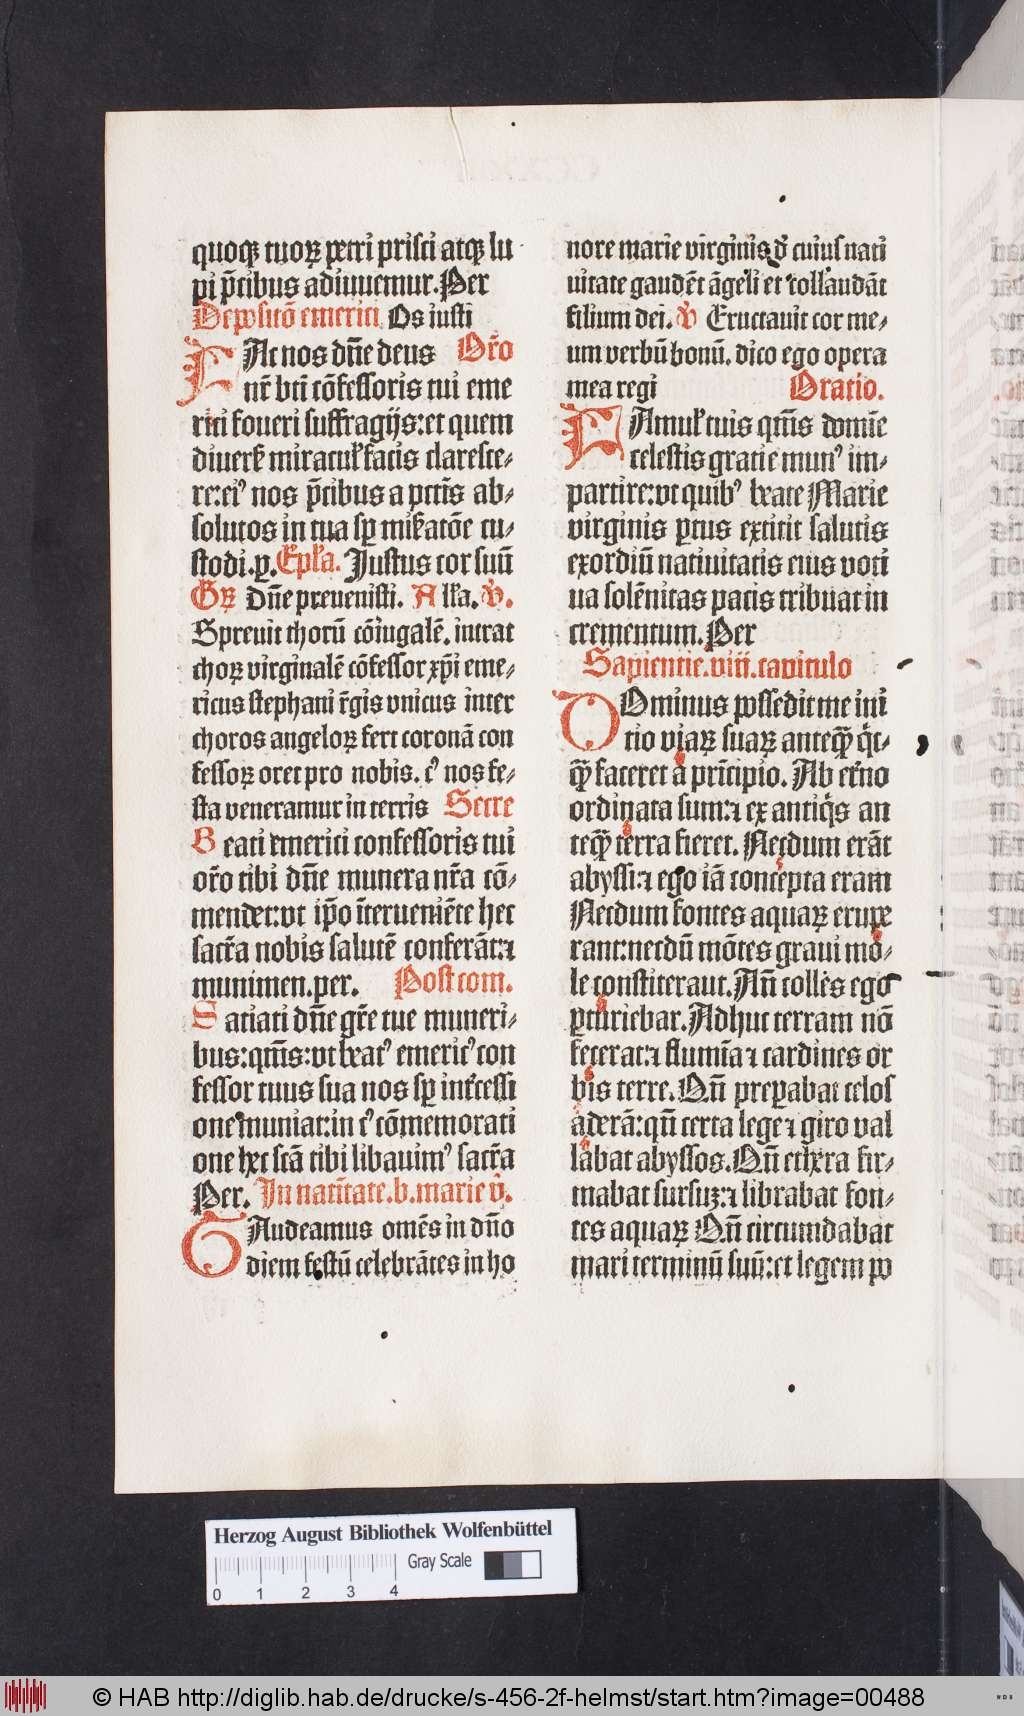 quoqꝫ tuoꝝ petri prisci atqꝫ lu
pi p̄cibus adiuuemur. Per
Deposicō emerici. Os iusti
FAc nos dn̄e deus Or̄o
nr̄i bt̄i cōfessoris tui eme
rici foueri suffragijs: et quem
diuers miracul' facis claresce-
re: eiꝰ nos p̄cibus a pctīs ab-
solutos in tua sꝑ misẜatōe cu-
stodi. ꝑ. Epl'a. Justus cor suū
Gꝝ Dn̄e preuenisti. All'a. v̄.
Spreuit thorū cōiugalē. intrat
choꝝ virginalē cōfessor xp̄i eme-
ricus stephani r̄gis vnicus inter
choros angeloꝝ fert coronā con
fessoꝝ oret pro nobis. ꝰ nos fe-
sta veneramur in terris Secre
Beati emerici confessoris tui
or̄o tibi dn̄e munera nr̄a cō-
mendet: vt ip̄o īterueniēte hec
sacr̄a nobis salutē conferāt: ⁊
munimen. per. Postcom.
Satiati dn̄e gr̄e tue muneri-
bus: qm̄s: vt beatꝰ emericꝰ con
fessor tuus sua nos sꝑ int̄cessi
one muniat: in cꝰ cōmemorati
one hec scā tibi libauimꝰ sacr̄a
Per. In natīitate. b. marie v̄.
GAudeamus omēs in dn̄o
diem festū celebrātes in ho
nore marie virginis d̄ cuius nati
uitate gaudēt āgeli et collaudāt
filium dei. v̄ Eructauit cor me-
um verbū bonū. dico ego opera
mea regi Oratio.
FAmul' tuis qm̄s domīe
celestis gratie munꝰ im-
partire: vt quibꝰ beate Marie
virginis ꝑtus extitit salutis
exordiū natiuitatis eius voti
ua solēnitas pacis tribuat in
crementum. Per
Sapientie. viii. capitulo
DOminus possedit me ini
tio viaꝝ suaꝝ anteqꝫ̄ q̇c-
qꝫ̄ faceret a prīcipio. Ab et̄no
ordinata sum: ⁊ ex antiq̇s an
teqꝫ̄ terra fieret. Necdum erāt
abyssi: ⁊ ego iā concepta eram
Necdum fontes aquaꝝ erupe
rant: necdū mōtes graui mo-
le constiterant. An̄ colles ego
ꝑturiebar. Adhuc terram nō
fecerat: ⁊ flumīa ⁊ cardines or
bis terre. Qn̄ preꝑabat celos
aderā: qn̄ certa lege ⁊ giro val
labat abyssos. Qn̄ ethera fir-
mabat sursuꝫ: ⁊ librabat fon-
tes aquaꝝ Qn̄ circumdabat
mari terminū suū: et legem po
Herzog August Bibliothek Wolfenbüttel
Gray Scale
0 1 2 3 4
© HAB http://diglib.hab.de/drucke/s-456-2f-helmst/start.htm?image=00488